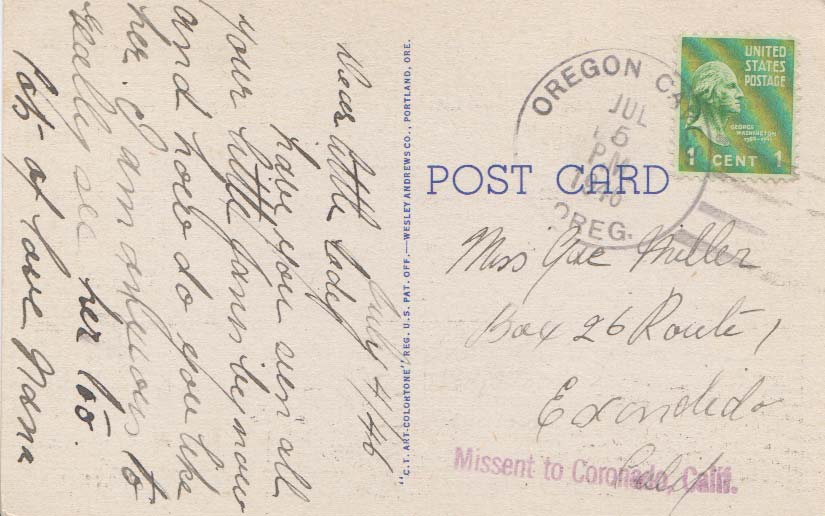 July 4/46
Dear little lady
have you seen all
your little now
and how do you like
her. I am anxious to
really see her too.
lots of love Nana
"C.T. ART-COLORTONE" REG. U.S. PAT. OFF.—WESLEY ANDREWS CO., PORTLAND, ORE.
POST CARD
OREGON
JUL
5
PM
OREG.
UNITED
STATES
POSTAGE
GEORGE
WASHINGTON
1 CENT 1
Miss Miller
Box 26 Route 1
Escondido
Calif
Missent to Coronado, Calif.